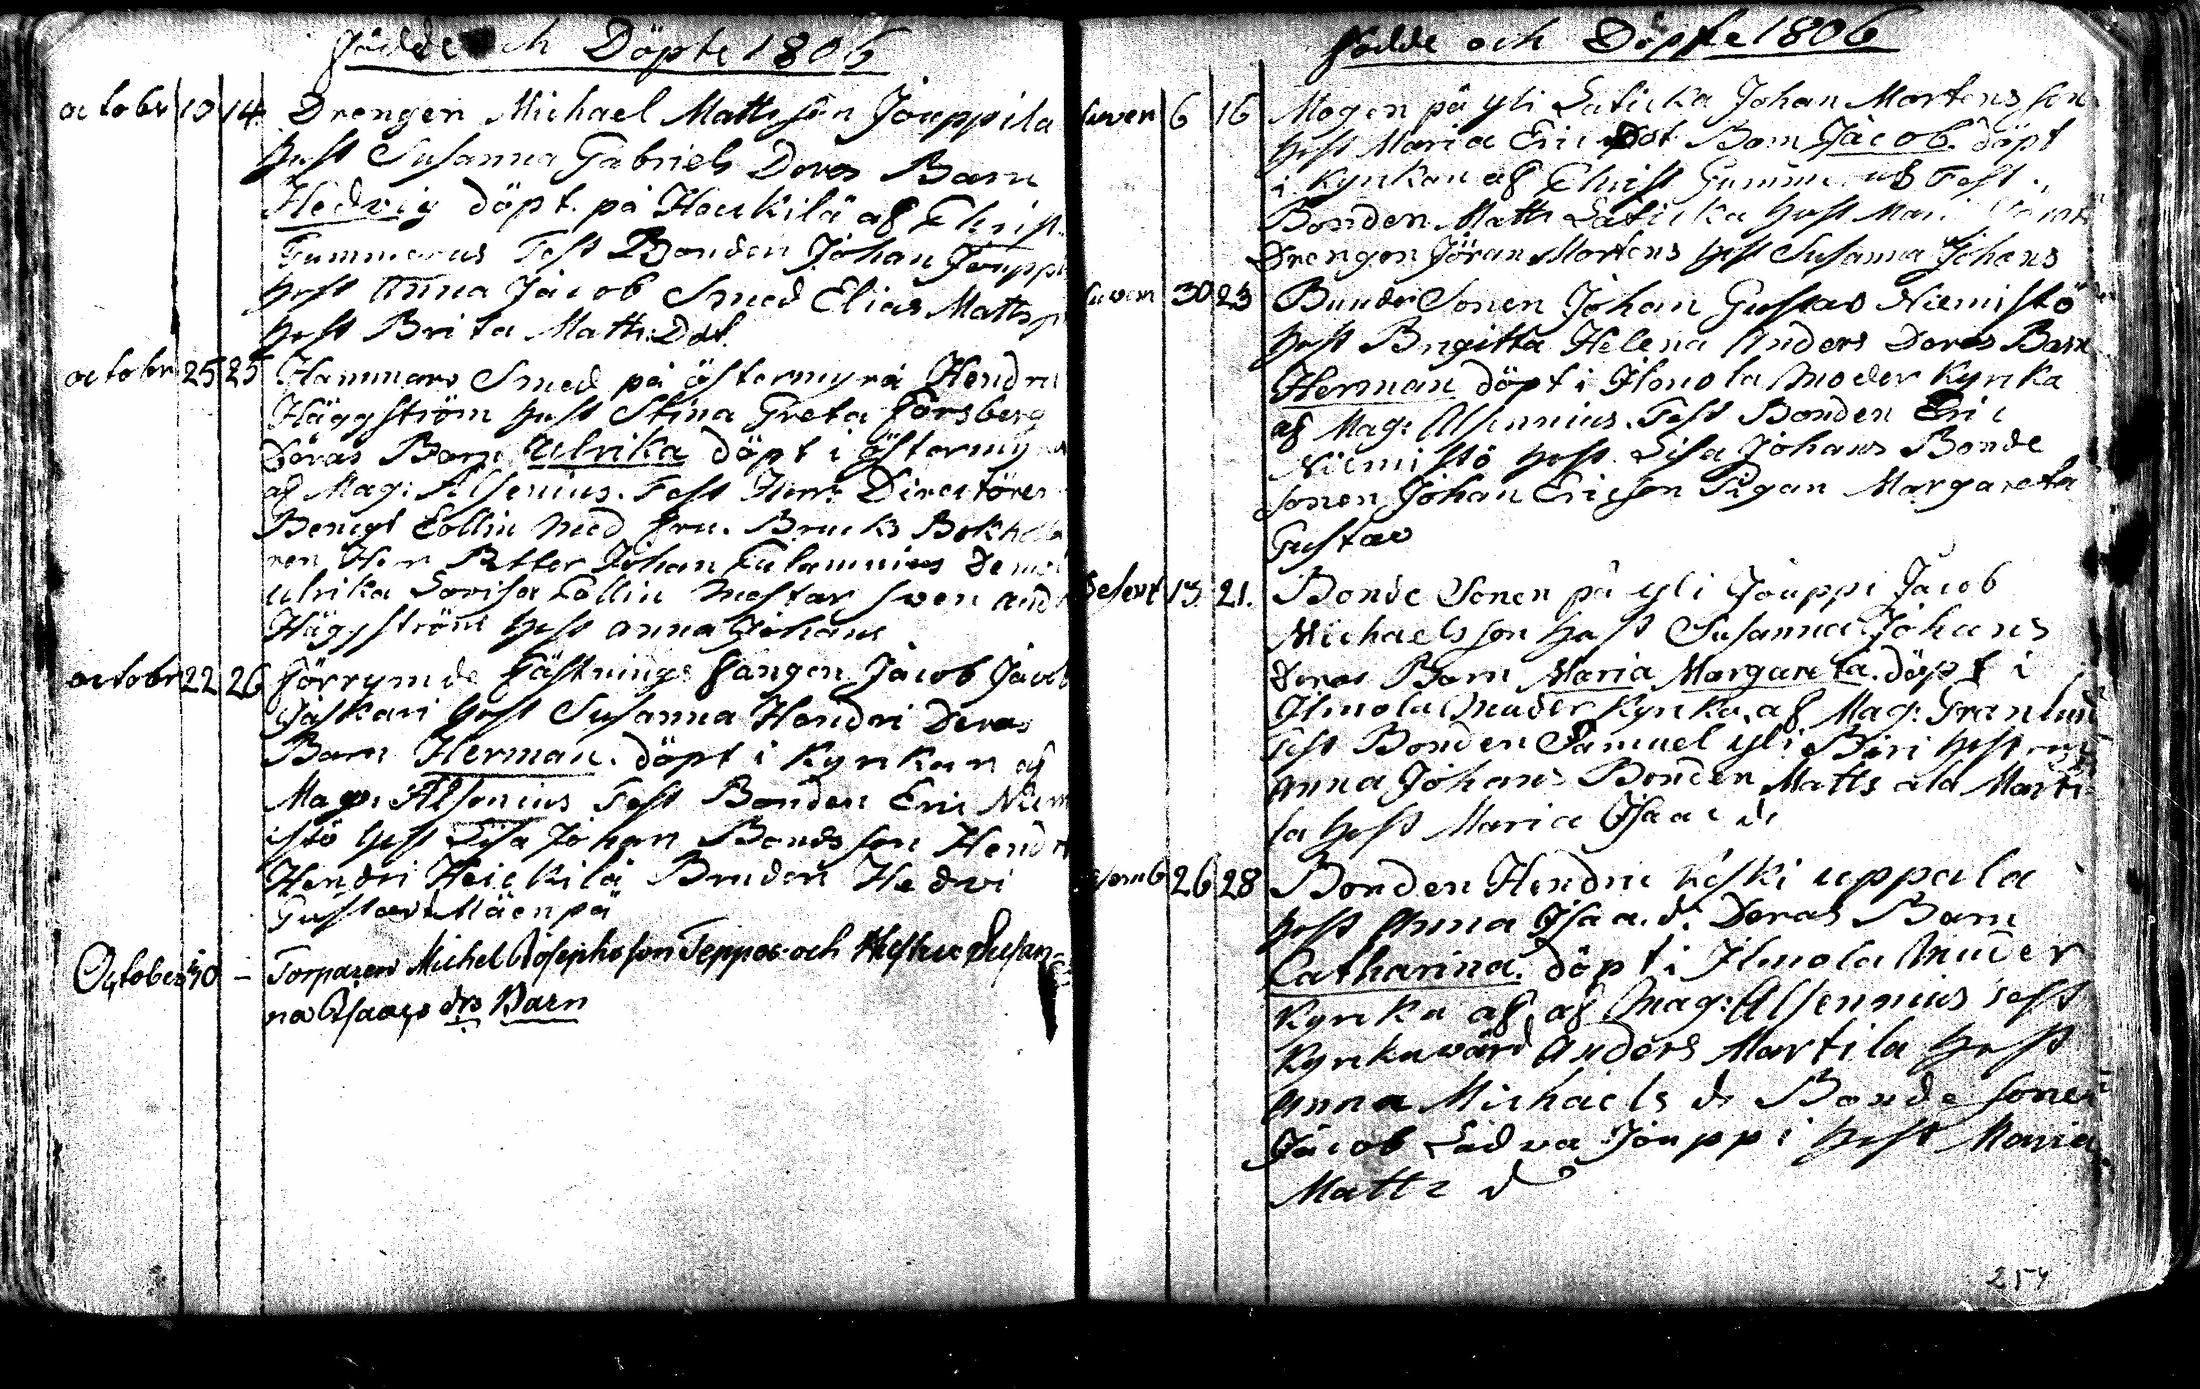 Födde och Döpte 1806
octobr 10 14. Drengen Michael Mattsson Jouppila
hust Susanna Gabriels Deras Barn
Hedvig döpt. på Heickilä af Christ.
Gummerus Test Bonden Johan Jouppi
hust Anna Jacob Smed Elias Matts
hust Brita Matts Dot.
octobr 25 25 Hammars Smed på östermyra Hendric
Häggström hust Stina Greta Forsberg
Deras Barn Ulrika döpt i östermyra
af Mag: Alsenius. Test Herr Directören
Bengt Collin med fru. Bruks Bokhålla
ren Herr Petter Johan Calamnius Demois
Ulrika Lovisa Collin Mestar Sven And
Häggström hust Anna Johans
octobr 22 26 Förrymde Fästnings fången Jacob Jacob
Jäskari hust Susanna Hendri Deras
Barn Herman. döpt i Kyrkan af
Mag: Alsenius Test Bonden Eric Niem
istö hust Lisa Johan Bondsson Hendri
Hendri Heickilä Bruden Hedvi
Gustav Mäenpä
October 30 – Torparen Michel Josephsson Teppos och Hustru Susan
na Isaacs drs Barn
Födde och Döpte 1806
Noven 6 16 Mågen på yli Laticka Johan Mortensson
hust Maria Erics Dot Barn Jacob. döpt
i Kyrkan af Christ Gummerus Test.
Bonden Matts Laticka hust Mari
Drengen Jöran Mortens hust Susanna Johans
Noven 30 23 Bunde Sonen Johan Gustav Niemistö
hust Brigitta Helena Anders Deras Barn
Herman döpt i Ilmola Moder Kyrka
af Mag: Alsennius. Test Bonden Eric
Niemistö hust Lisa Johans Bonde
sonen Johan Ericson Pigan Margareta
Gustav
Desem 13 21. Bonde Sonen på yli Jouppi Jacob
Michaelsson hust Susanna Johans
Deras Barn Maria Margareta. döpt i
Ilmola Moder Kyrka, af Mag: Granlund
Test Bonden Samuel yli Biri hust
Anna Johans Bonden Matts ala Marti
la hust Maria Isaac dr
Desemb 26 28 Bonden Hendric Keski uppala
hust Anna Isaa. dr. Deras Barn
Catharina. döpt i Ilmola Muder
Kyrka af af Mag: Alsennius Test
Kyrkuvärd Anders Martila hust
Anna Michaels dr Bonde sonen
Jacob Ladva Jouppi hust Maria
Matts d
254